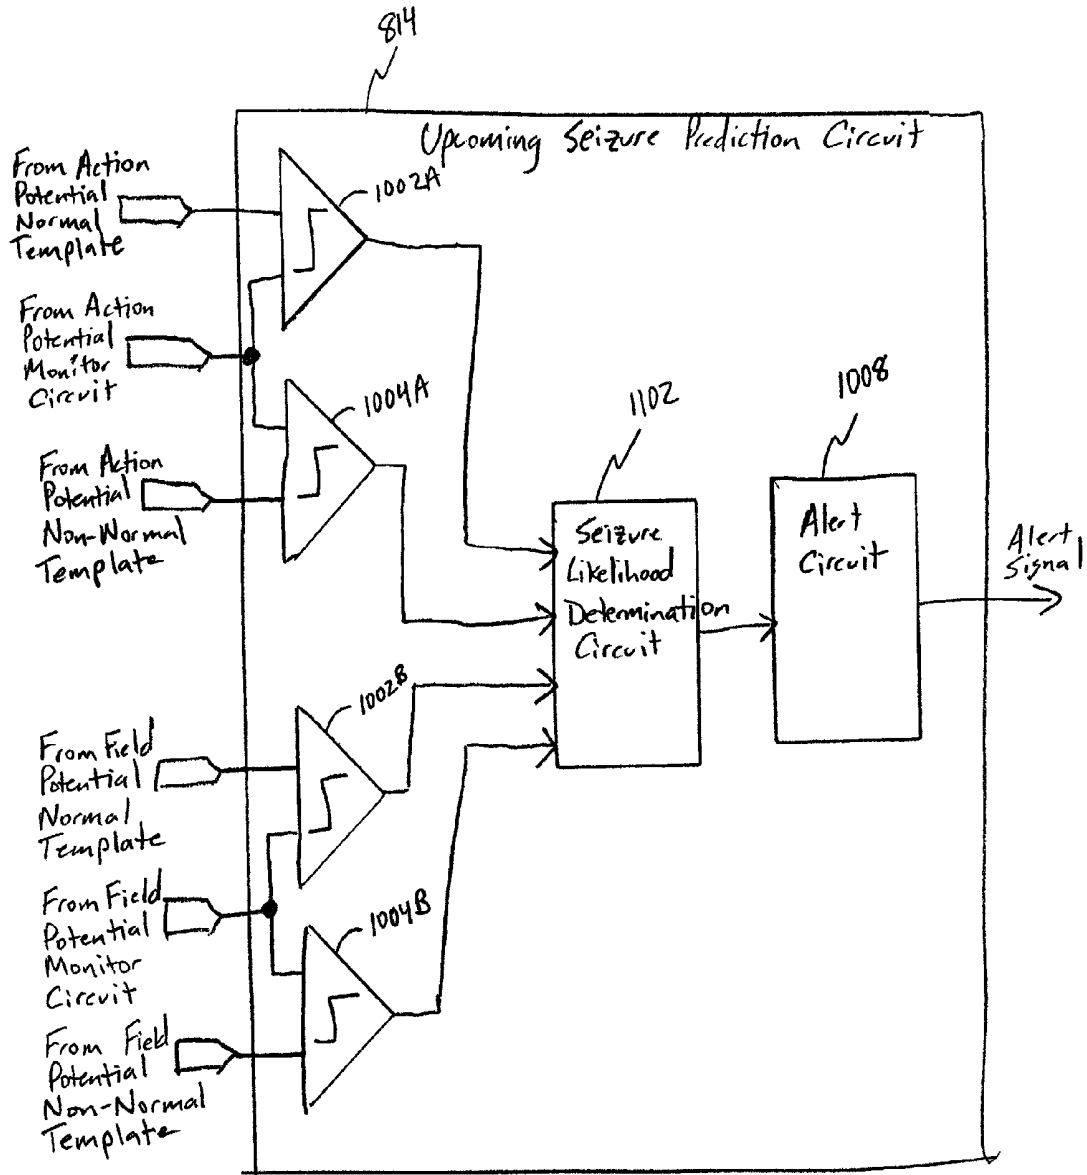 814
Upcoming Seizure Prediction Circuit
From Action
Potential
Normal
Template
1002A
From Action
Potential
Monitor
Circuit
1004A
From Action
Potential
Non-Normal
Template
1102
Seizure
Likelihood
Determination
Circuit
1008
Alert
Circuit
Alert
Signal
1002B
From Field
Potential
Normal
Template
From Field
Potential
Monitor
Circuit
1004B
From Field
Potential
Non-Normal
Template